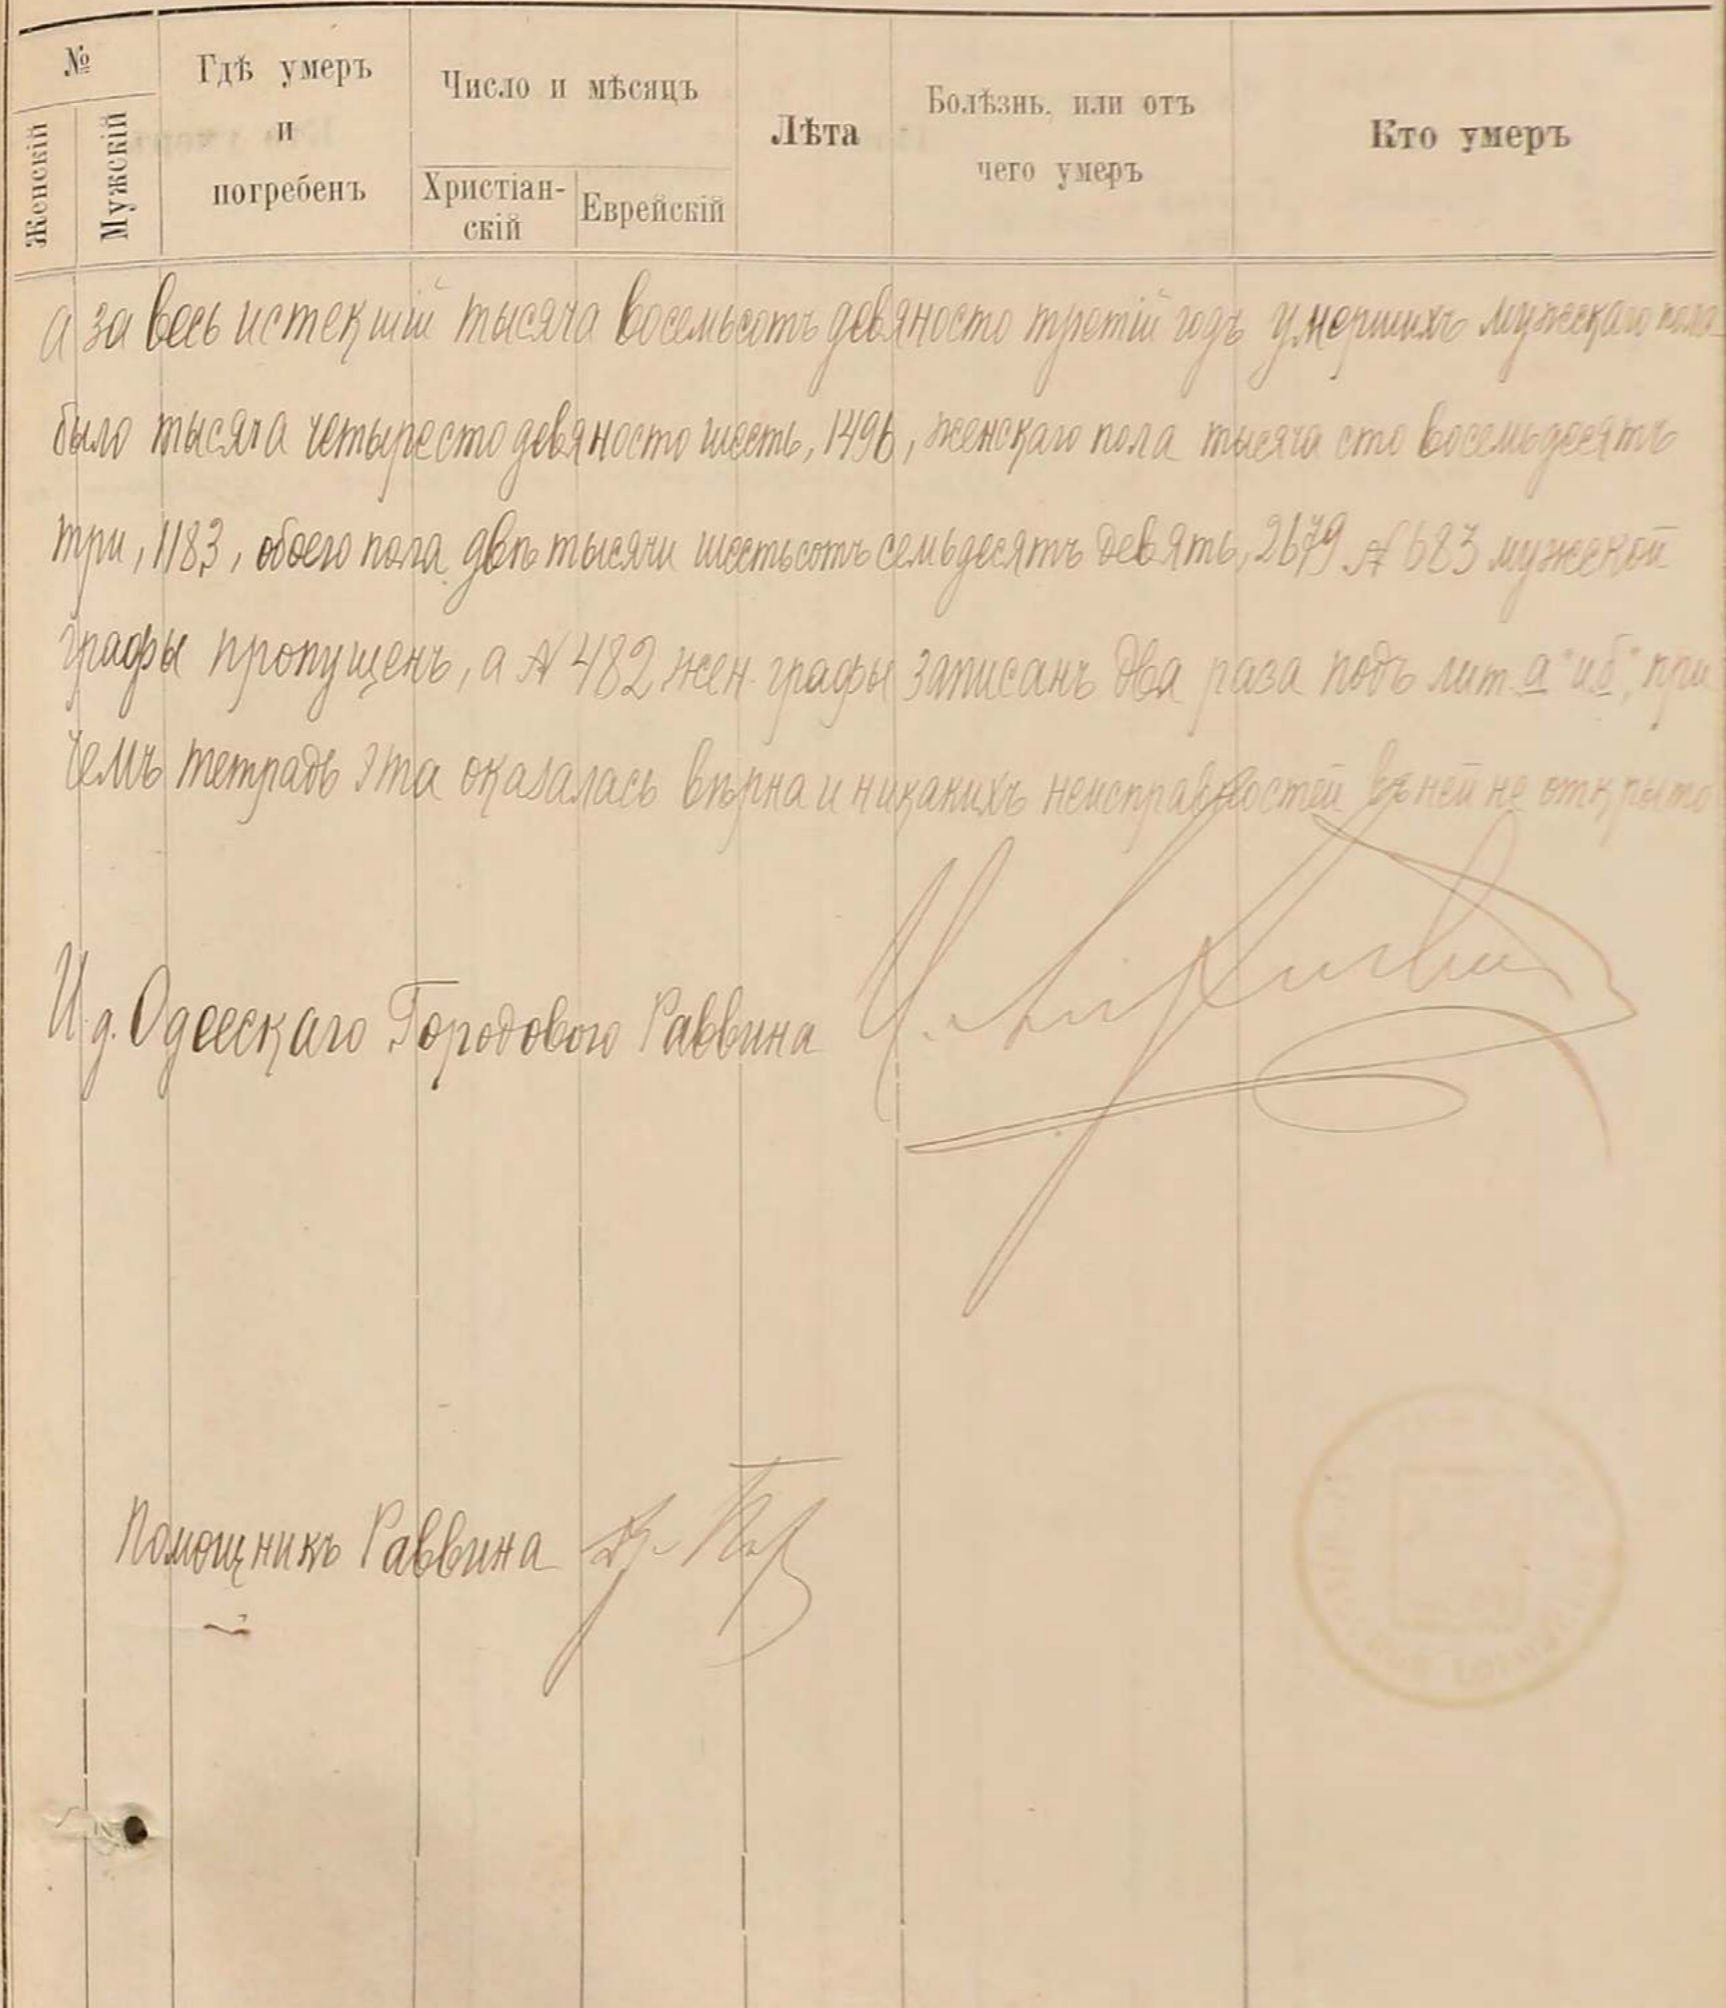 №
Женскій
Мужскій
Гдѣ умеръ
и
погребенъ
Число и мѣсяцъ
Христіан-
скій
Еврейскій
Лѣта
Болѣзнь, или отъ
чего умеръ
Кто умеръ
а за весь истекшій тысяча восемьсотъ девяносто третій годъ умершихъ мужскаго пола
было тысяча четыресто девяносто шесть, 1496, женскаго пола тысяча сто восемьдесятъ
три, 1183, обоего пола двѣ тысячи шестьсотъ семьдесятъ девять, 2679 № 683 мужской
графы пропущенъ, а № 482 жен. графы записанъ два раза подъ лит. а" и б", при
чемъ тетрадь эта оказалась вѣрна и никакихъ неисправностей въ ней не открыто
И. д. Одесскаго Городового Раввина
Помощникъ Раввина